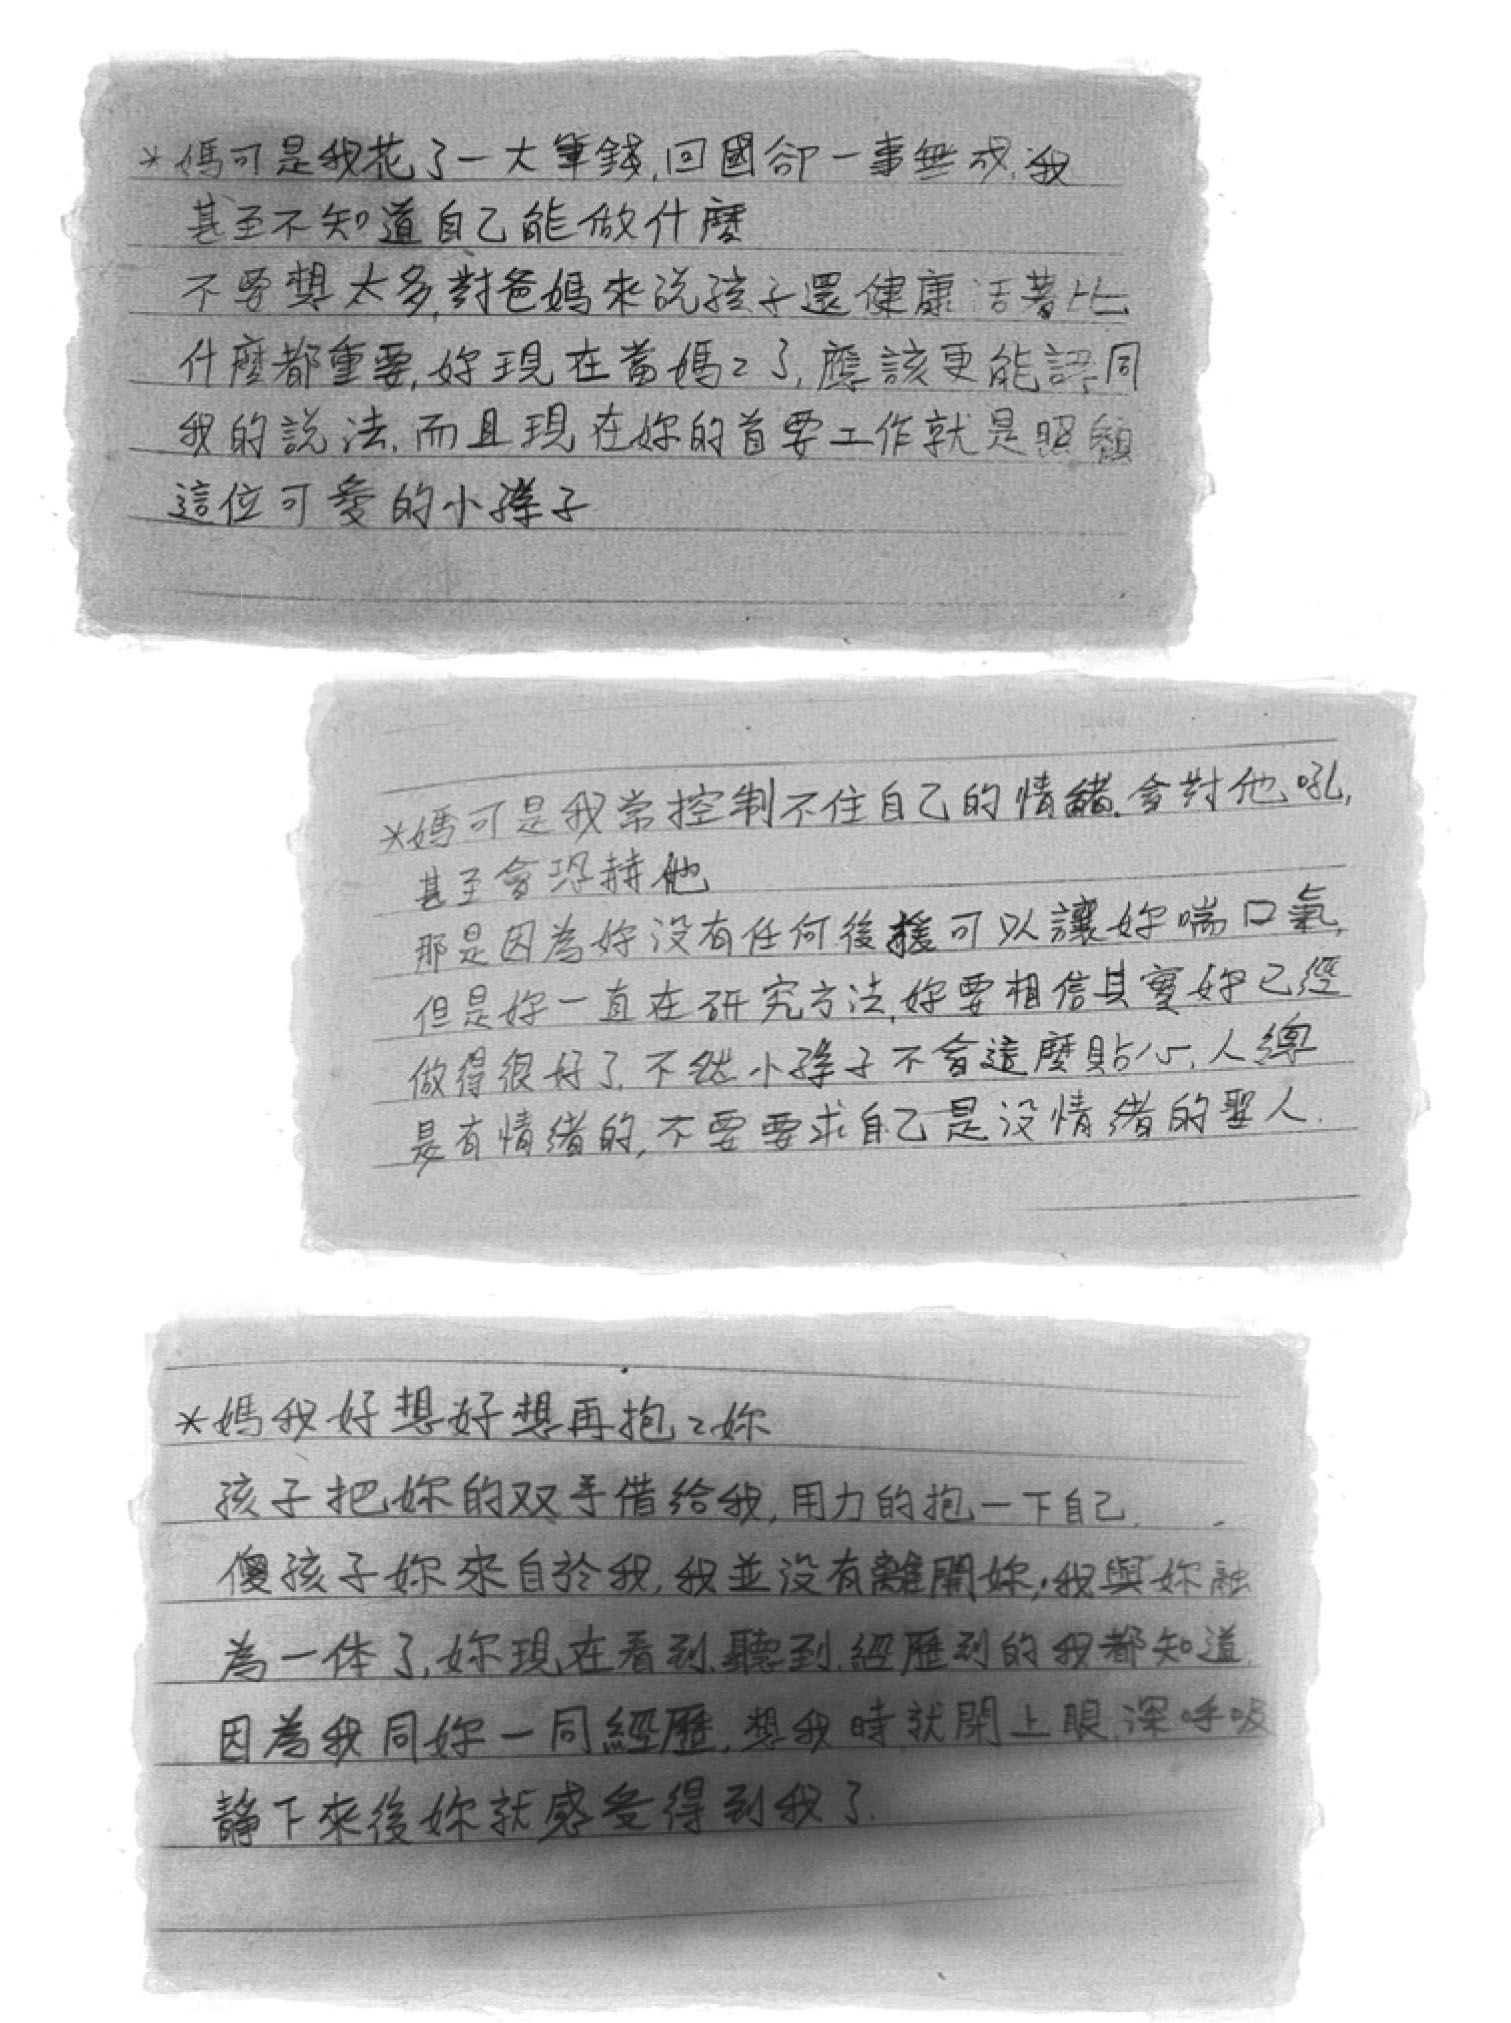 *媽可是我花了一大筆錢,回國卻一事無成,我
甚至不知道自己能做什麼
不要想太多,對爸媽來說孩子還健康活著比
什麼都重要,妳現在當媽媽了,應該更能認同
我的說法,而且現在妳的首要工作就是照顧
這位可愛的小孫子
*媽可是我常控制不住自己的情緒,會對他吼,
甚至會恐赫他
那是因為妳沒有任何後援可以讓妳喘口氣,
但是妳一直在研究方法,妳要相信其實妳已經
做得很好了,不然小孫子不會這麼貼心,人總
是有情緒的,不要要求自己是沒情緒的聖人.
*媽我好想好想再抱抱妳
孩子把妳的双手借給我,用力的抱一下自己.
傻孩子妳來自於我,我並沒有離開妳,我與妳融
為一体了,妳現在看到.聽到.經歷到的我都知道.
因為我同妳一同經歷,想我時就閉上眼,深呼吸
靜下來後妳就感受得到我了.